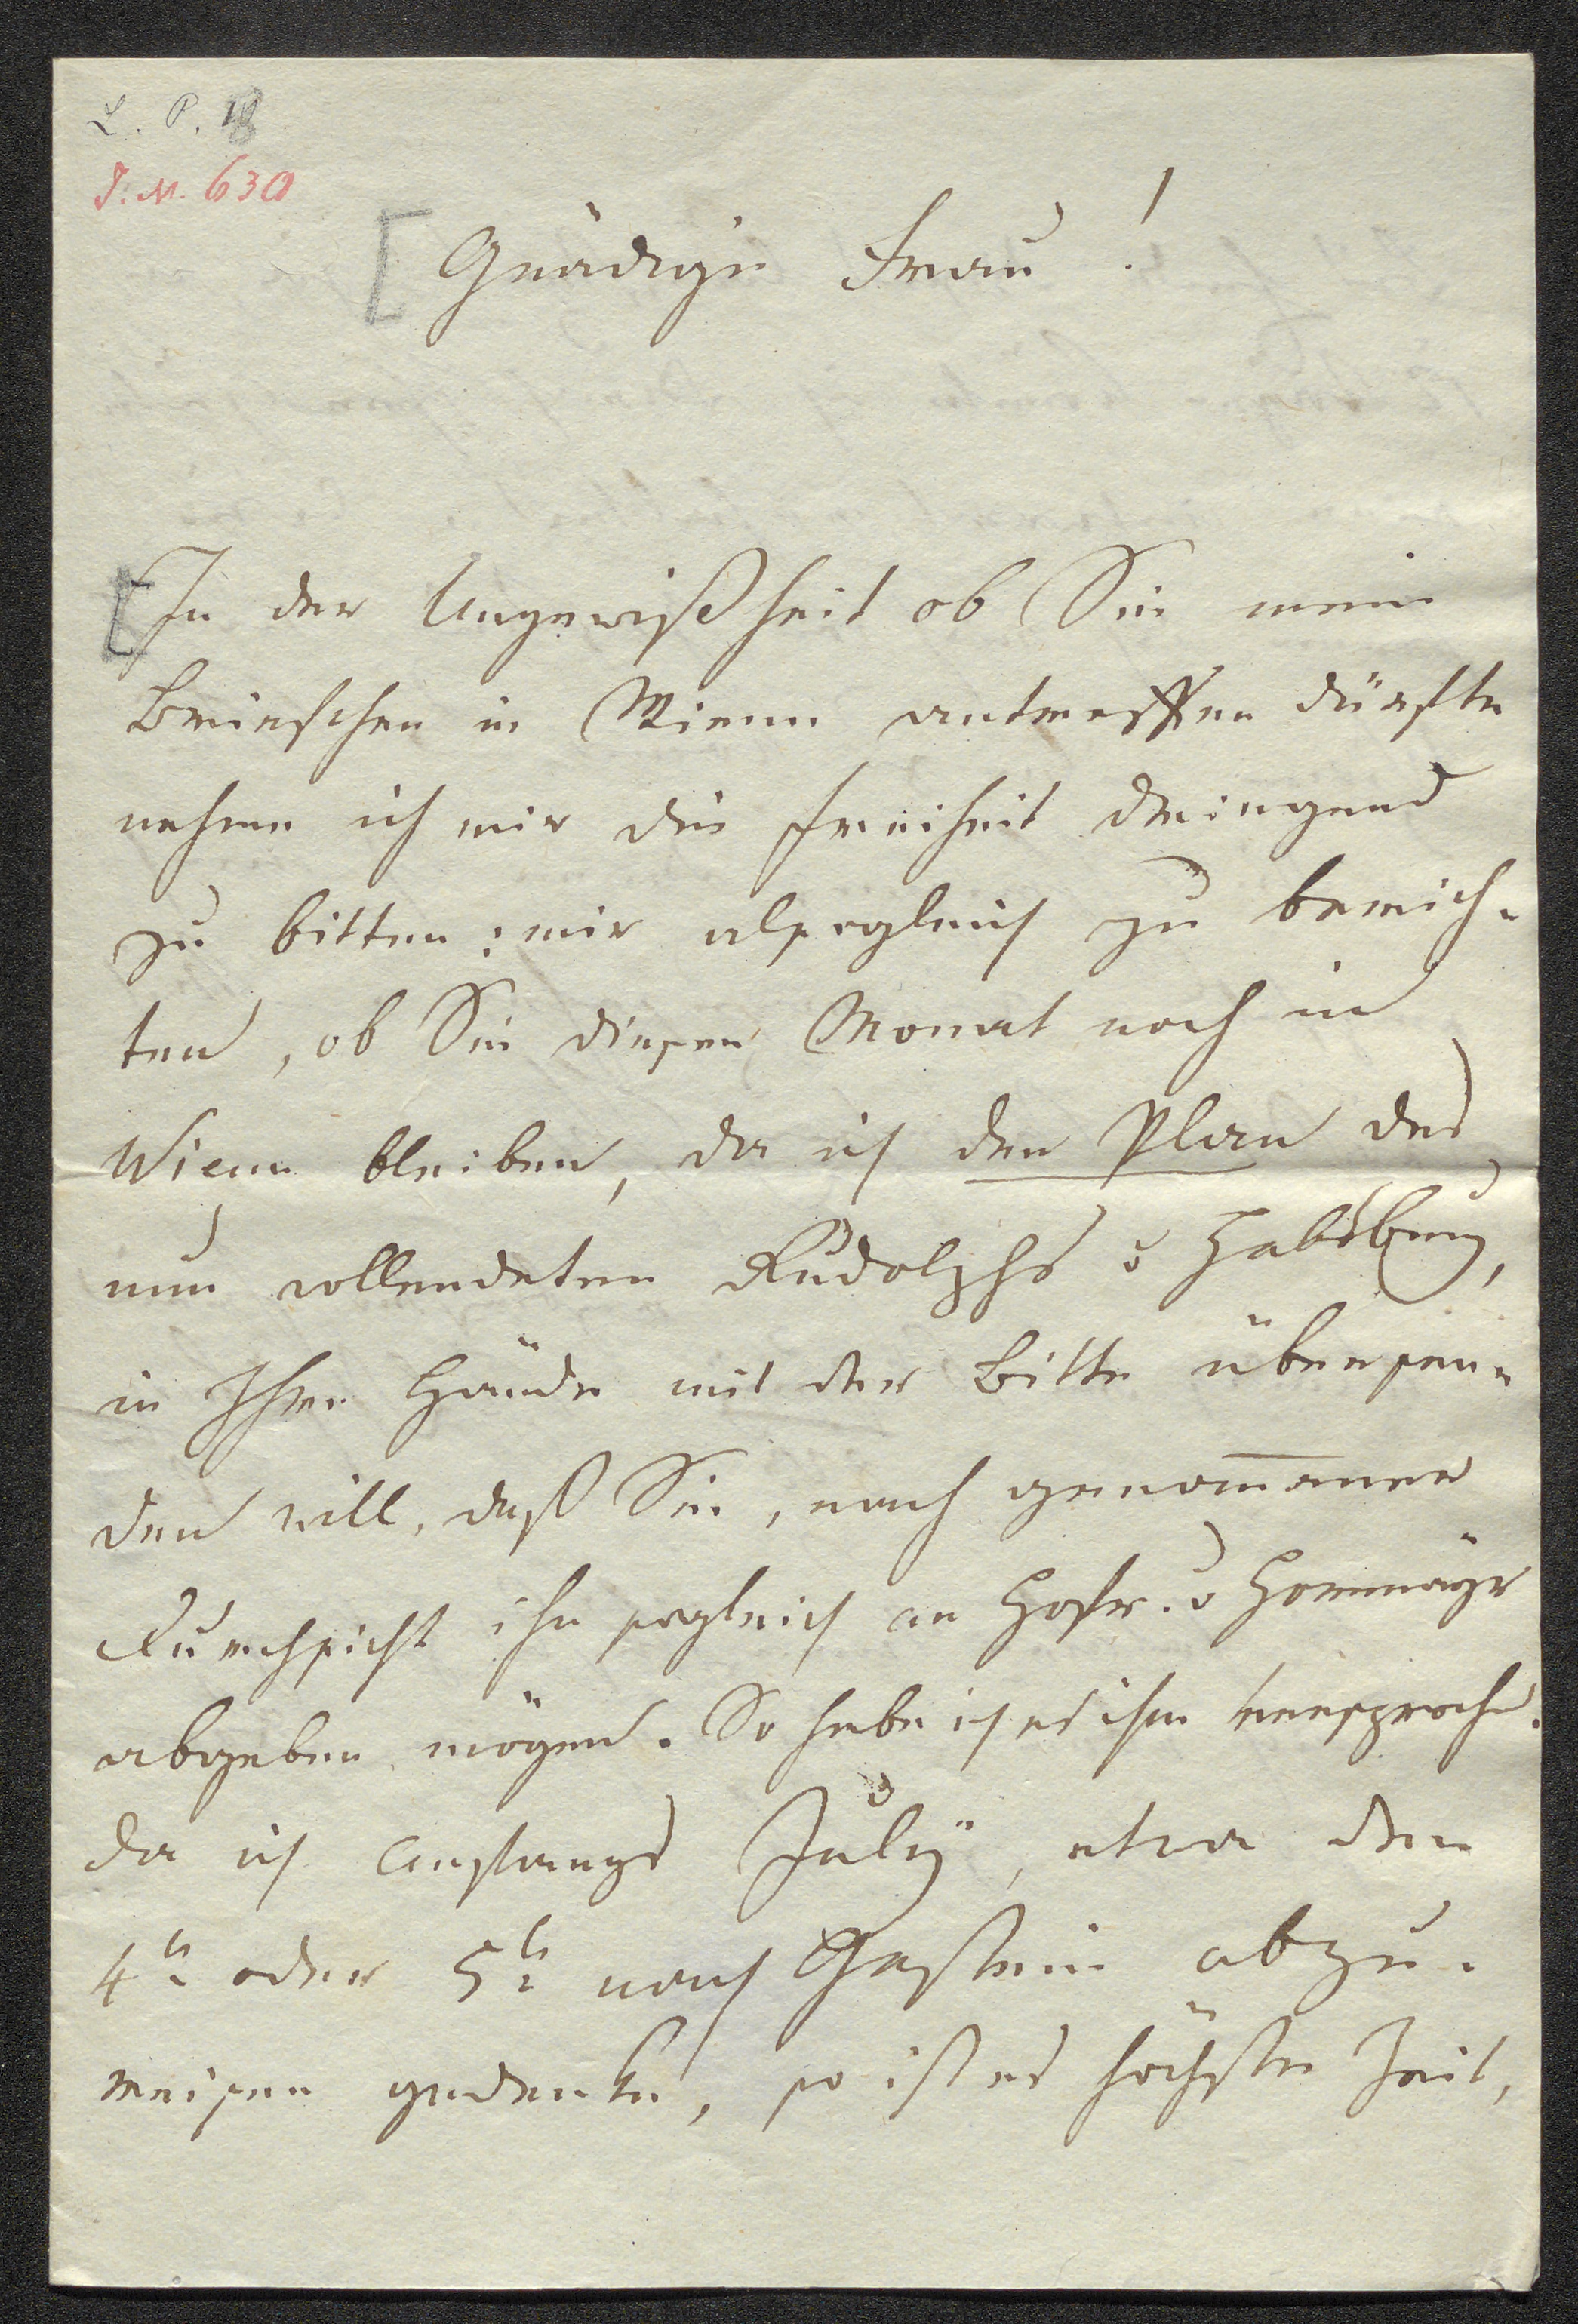 L. P. 18
J. N. 630
[Gnädige Frau!
[In der Ungewißheit ob Sie mein
Briefchen in Wienn antreffen dürfte
nehme ich mir die Freiheit dringend
zu bitten: mir alsogleich zu berich-
ten, ob Sie diesen Monat noch in
Wienn bleiben, da ich den Plan des
nun vollendeten Rudolphs v Habsburg,
in Ihre Hände mit der Bitte übersen-
den will, daß Sie, nach genom̅ener
Durchsicht ihn sogleich an Hofr. v Hormayr
abgeben mögen. So habe ich es ihm versproche.
da ich Anfangs July, etwa den
4tn oder 5tn nach Gastein abzu-
reisen gedenke, so ist es höchste Zeit,